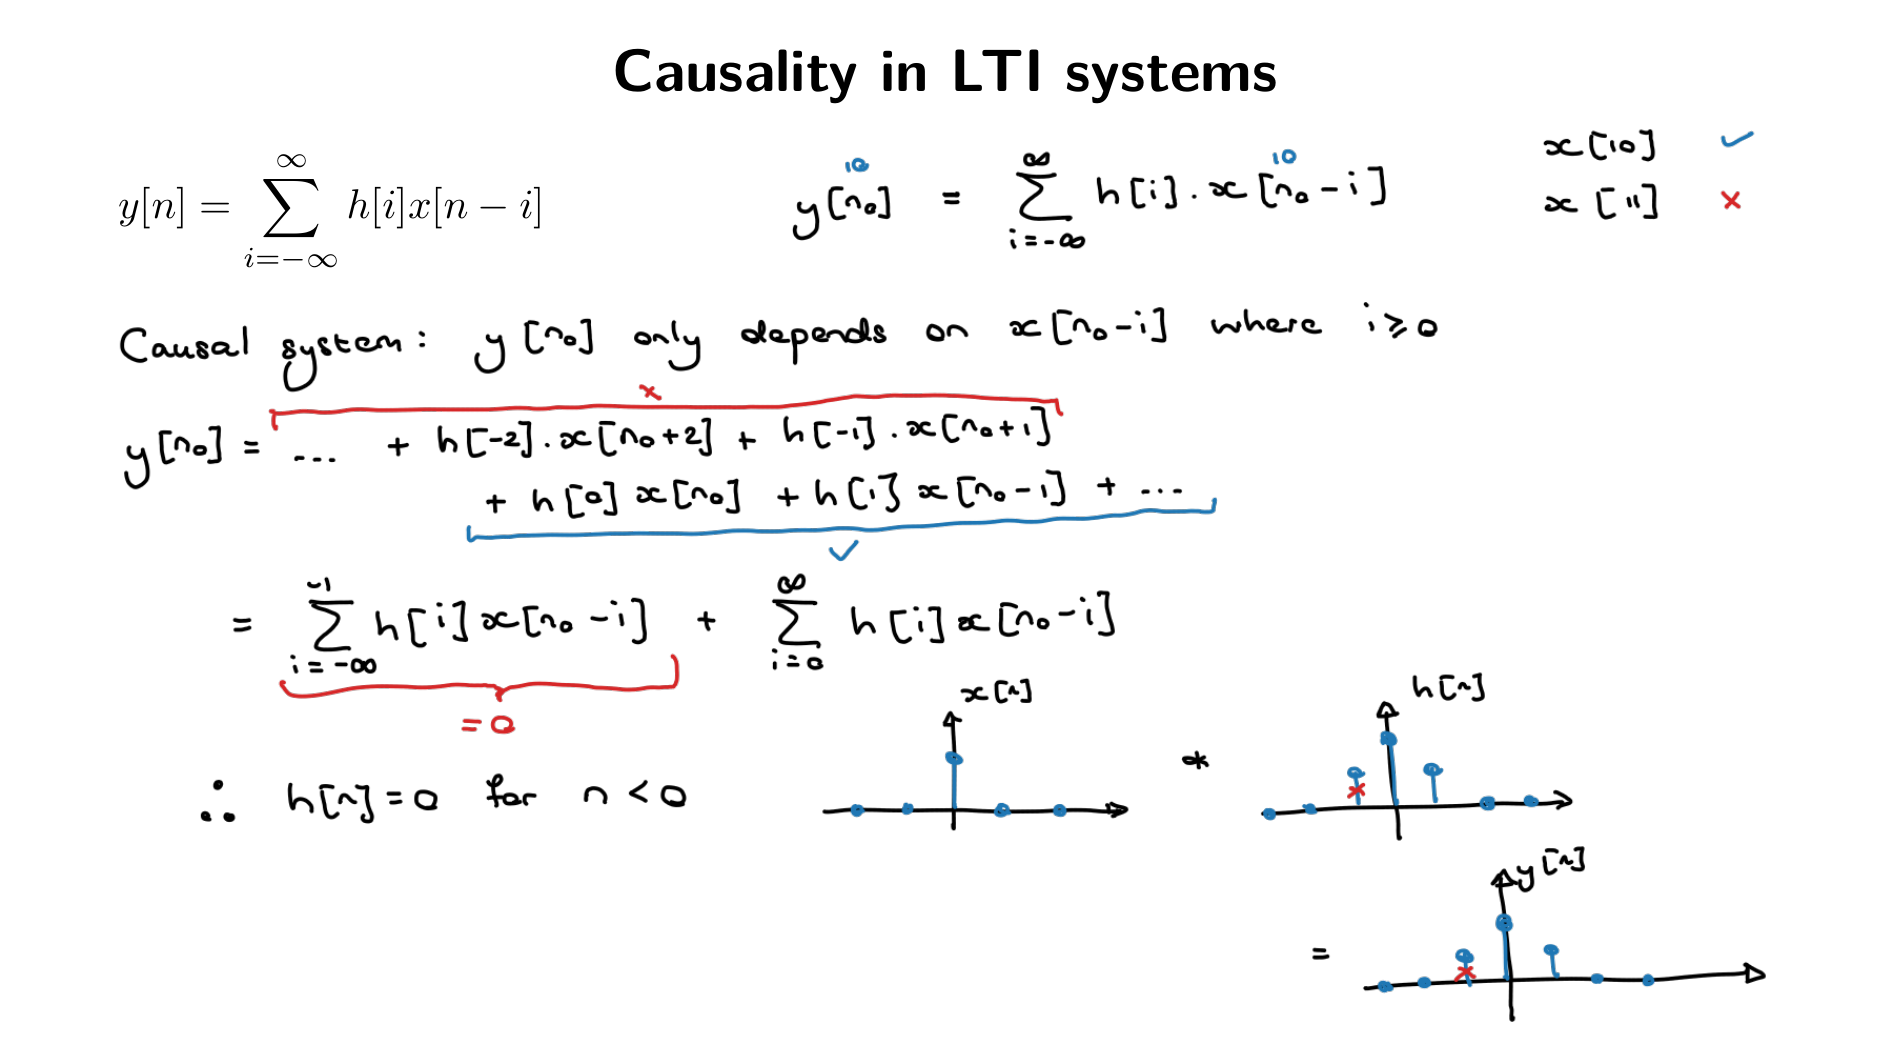 Causality in LTI systems
y[n] = ∑_{i=−∞}^{∞} h[i]x[n − i]
10 10
y[n₀] = ∑_{i=-∞}^{∞} h[i] . x[n₀ - i]
x[10] ✓
x[11] ×
Causal system: y[n₀] only depends on x[n₀-i] where i ≥ 0
×
y[n₀] = ... + h[-2] . x[n₀+2] + h[-1] . x[n₀+1]
+ h[0] x[n₀] + h[1] x[n₀-1] + ...
✓
= ∑_{i=-∞}^{-1} h[i] x[n₀ - i] + ∑_{i=0}^{∞} h[i] x[n₀ - i]
= 0
∴ h[n] = 0 for n < 0
x[n]
*
h[n]
×
=
y[n]
×